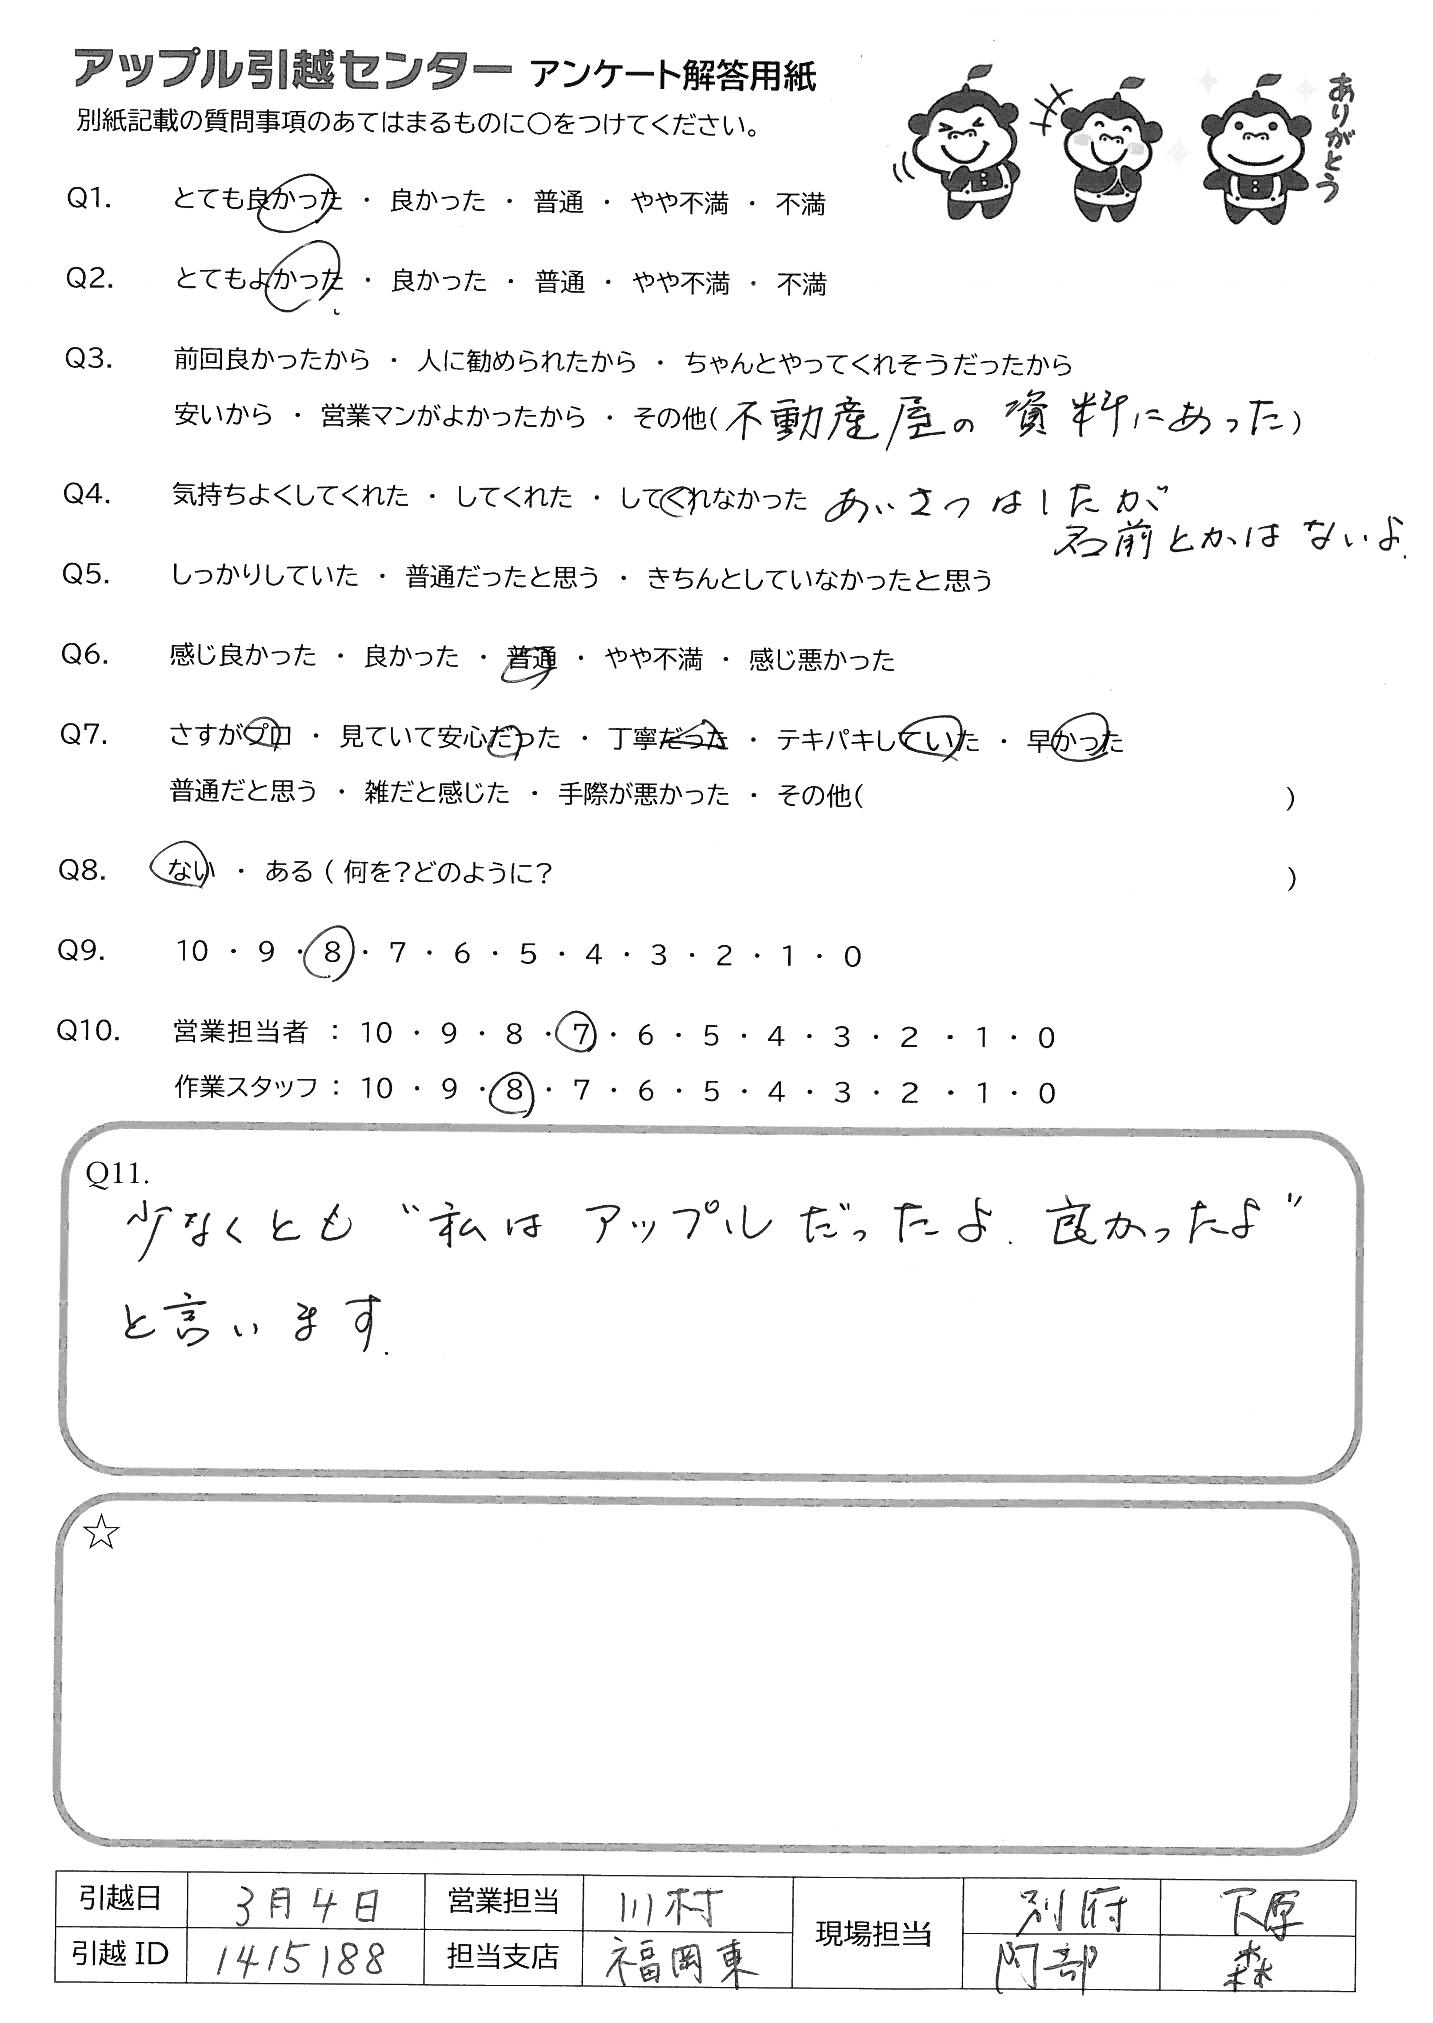 アップル引越センター アンケート解答用紙
別紙記載の質問事項のあてはまるものに○をつけてください。
ありがとう
Q1. とても良かった ・ 良かった ・ 普通 ・ やや不満 ・ 不満
Q2. とてもよかった ・ 良かった ・ 普通 ・ やや不満 ・ 不満
Q3. 前回良かったから ・ 人に勧められたから ・ ちゃんとやってくれそうだったから
安いから ・ 営業マンがよかったから ・ その他(不動産屋の資料にあった)
Q4. 気持ちよくしてくれた ・ してくれた ・ してくれなかった あいさつはしたが
名前とかはないよ.
Q5. しっかりしていた ・ 普通だったと思う ・ きちんとしていなかったと思う
Q6. 感じ良かった ・ 良かった ・ 普通 ・ やや不満 ・ 感じ悪かった
Q7. さすがプロ ・ 見ていて安心だった ・ 丁寧だった ・ テキパキしていた ・ 早かった
普通だと思う ・ 雑だと感じた ・ 手際が悪かった ・ その他( )
Q8. ない ・ ある ( 何を?どのように? )
Q9. 10 ・ 9 ・ 8 ・ 7 ・ 6 ・ 5 ・ 4 ・ 3 ・ 2 ・ 1 ・ 0
Q10. 営業担当者 : 10 ・ 9 ・ 8 ・ 7 ・ 6 ・ 5 ・ 4 ・ 3 ・ 2 ・ 1 ・ 0
作業スタッフ : 10 ・ 9 ・ 8 ・ 7 ・ 6 ・ 5 ・ 4 ・ 3 ・ 2 ・ 1 ・ 0
Q11.
少なくとも“私は アップルだったよ. 良かったよ”
と言います.
☆
引越日 3月4日 営業担当 川村 現場担当 別府 下原
引越 ID 1415188 担当支店 福岡東 阿部 森